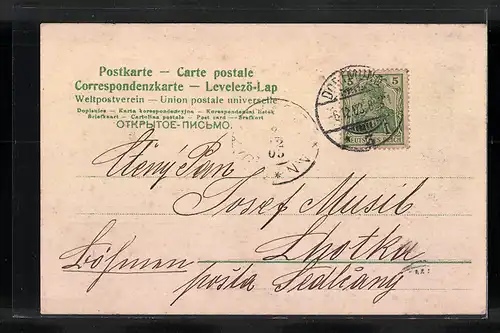 Postkarte – Carte postale
Correspondenzkarte – Levelező-Lap
Weltpostverein – Union postale universelle
Dopisnice – Karta korespondencyjna – Korespondenční lístek
Briefkaart – Cartolina postale – Post card – Brefkort
ОТКРЫТОЕ-ПИСЬМО.
5
Ctěný Pan
Josef Musil
Lhotka
Böhmen
pošta Sedlčany